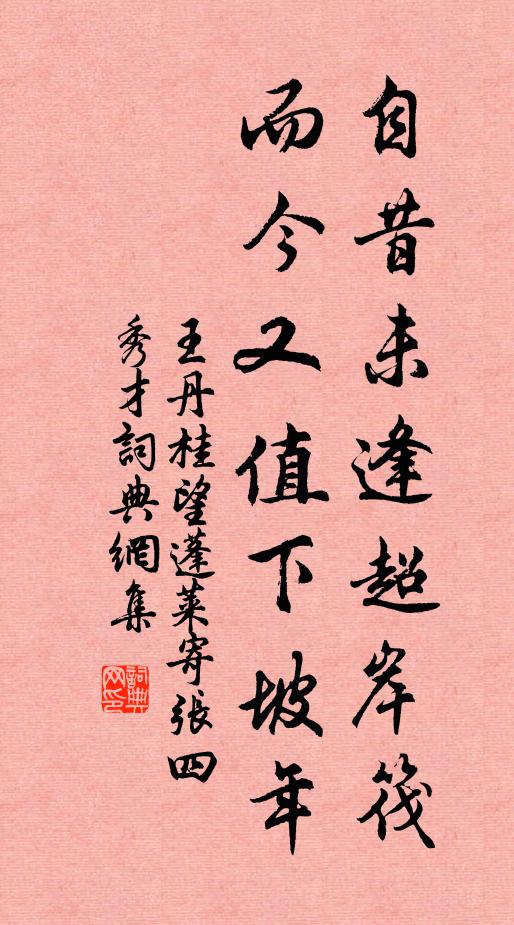 自昔未逢超岸筏
而今又值下坡年
王丹桂望蓬萊寄張四
秀才詞典網集
詞典网印